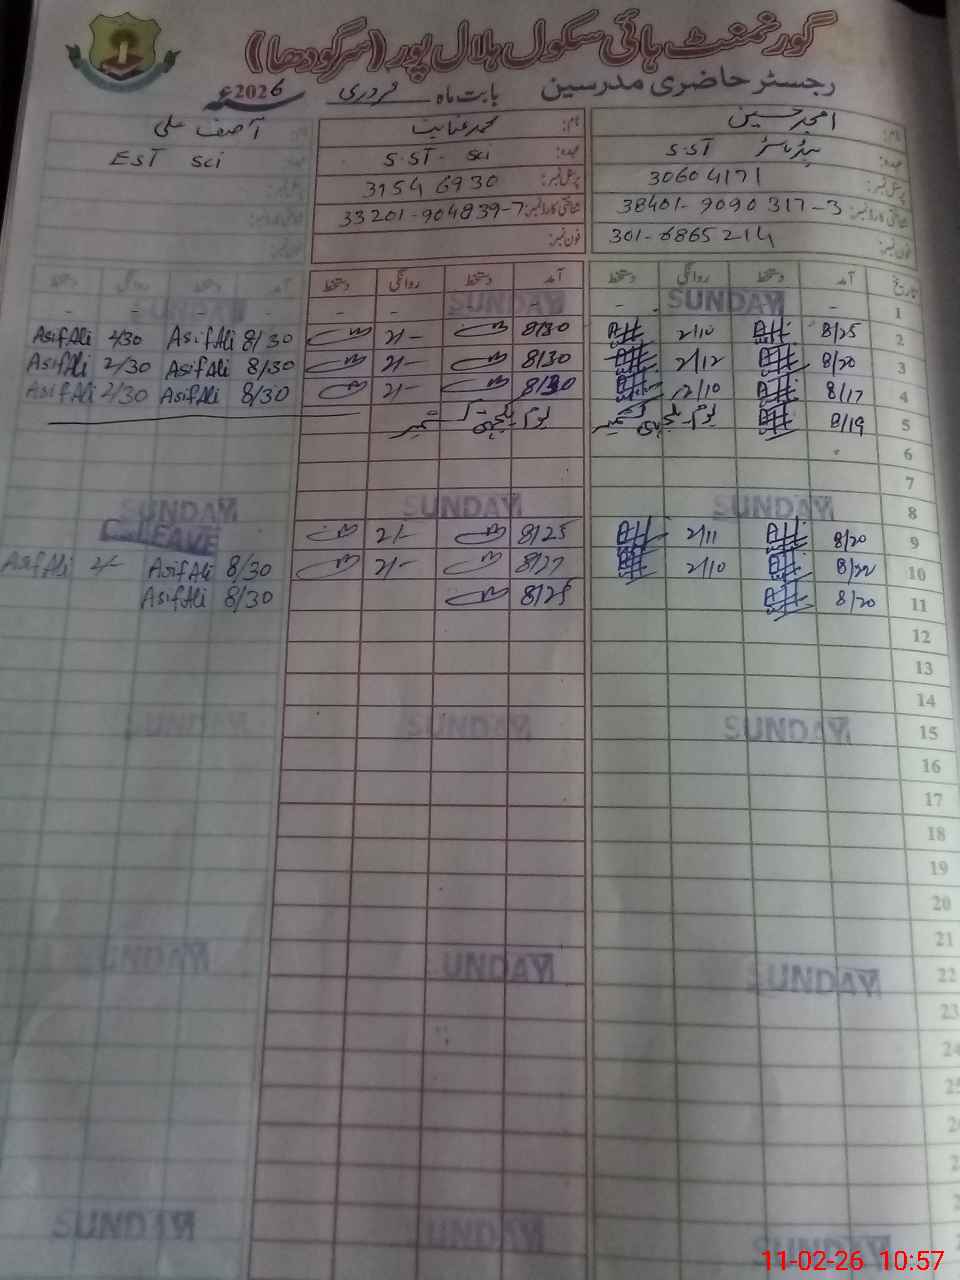 گورنمنٹ ہائی سکول ہلال پور (سرگودھا)
رجسٹر حاضری مدرسین بابت ماہ فروری 2026ء
نام: امجد حسین نام: محمد عنایت نام: آصف علی
عہدہ: ہیڈ ماسٹر S.ST عہدہ: S.ST- Sci عہدہ: EST Sci
پرسنل نمبر: 30604171 پرسنل نمبر: 31546930 پرسنل نمبر:
شناختی کارڈ نمبر: 38401-9090317-3 شناختی کارڈ نمبر: 33201-904839-7 شناختی کارڈ نمبر:
فون نمبر: 301-6865214 فون نمبر: فون نمبر:
تاریخ آمد دستخط روانگی دستخط آمد دستخط روانگی دستخط آمد دستخط روانگی دستخط
1 SUNDAY - - SUNDAY - - SUNDAY - -
2 8/25 2/10 8/30 2/- 8/30 Asif Ali 2/30 Asif Ali
3 8/20 2/12 8/30 2/- 8/30 Asif Ali 2/30 Asif Ali
4 8/17 2/10 8/30 2/- 8/30 Asif Ali 2/30 Asif Ali
5 8/19 یوم یکجہتی کشمیر یوم یکجہتی کشمیر
6
7
8 SUNDAY SUNDAY SUNDAY
9 8/20 2/11 8/25 2/- C-LEAVE
10 8/22 2/10 8/27 2/- 8/30 Asif Ali 2/- Asif Ali
11 8/20 8/25 8/30 Asif Ali
12
13
14
15 SUNDAY SUNDAY SUNDAY
16
17
18
19
20
21
22 SUNDAY SUNDAY SUNDAY
23
24
SUNDAY SUNDAY SUNDAY
11-02-26 10:57